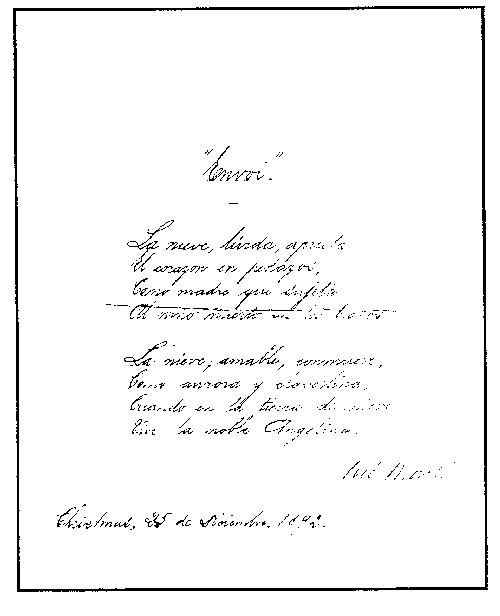 "Envoi".
La nieve, linda, aprieta
El corazon en pedazos,
Como madre que sujeta
Al niño muerto en los brazos
La nieve, amable, ,
Como aurora y clavellina,
Cuando en la tierra de nieve
Vive la noble Angelina.
José Martí
Christmas, 25 de Diciembre. 1892.